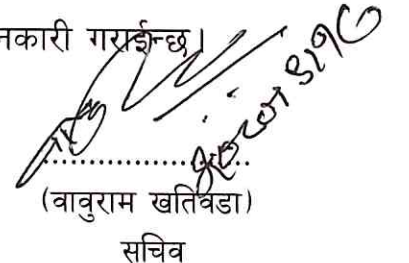 नकारी गराईन्छ।
....................
(वावुराम खतिवडा)
सचिव